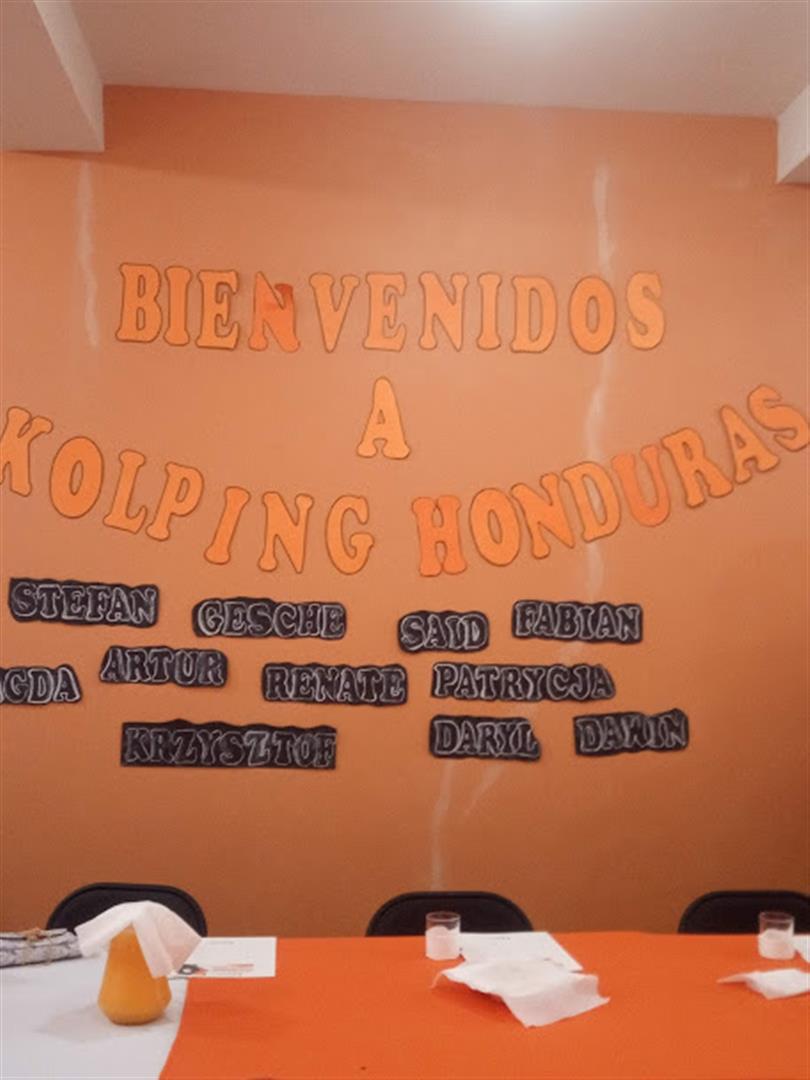 BIENVENIDOS
A
KOLPING HONDURAS
STEFAN GESCHE SAID FABIAN
GDA ARTUR RENATE PATRYCJA
KRZYSZTOF DARYL DAWIN